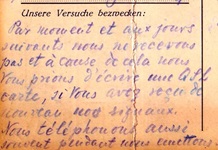 Unsere Versuche bezwecken:
Par moment et aux jours
suivants nous ne recevons
pas et à cause de cela nous
Vous prions d'écrire une QSL
carte, si Vous avez reçu de
nouveau nos signaux.
Nous téléphonons aussi
souvent pendant nous émettons